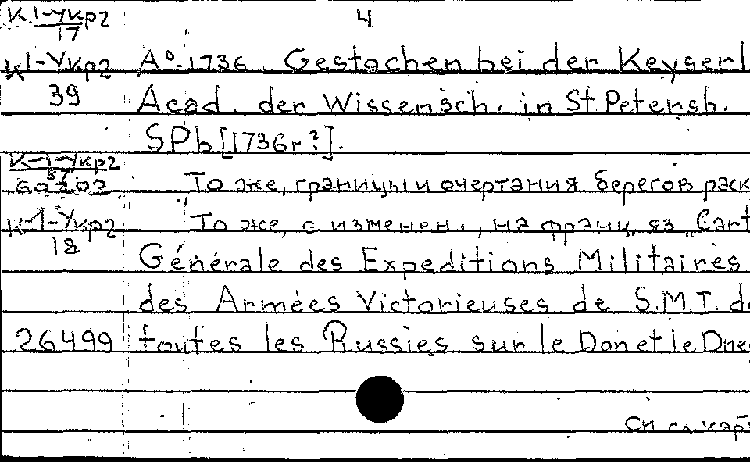 К 1-Укр2 4
17
К1-Укр2 Aº 1736. Gestochen bei der Keyserl
39 Acad. der Wissensch. in St. Petersb.
SPb [1736г?].
К-1-Укр2
То же, границы и очертания берегов раск
К-1-Укр2 То же, с изменен., на франц. яз. „Cart
18 Générale des Expeditions Militaires
des Armées Victorieuses de S.M.T. de
26499 toutes les Russies sur le Don et le Dne
См сл. кар